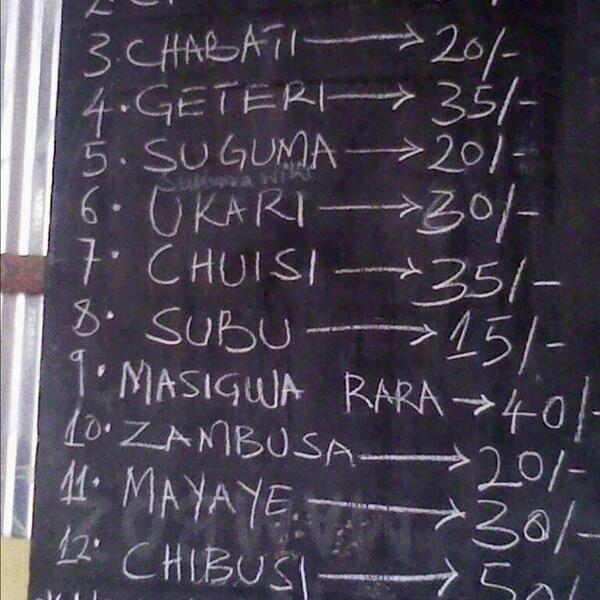 3. CHABATI → 20/-
4. GETERI → 35/-
5. SUGUMA → 20/-
6. UKARI → 30/-
7. CHUISI → 35/-
8. SUBU → 15/-
9. MASIGWA RARA → 40/-
10. ZAMBUSA → 20/-
11. MAYAYE → 30/-
12. CHIBUSI → 50/-